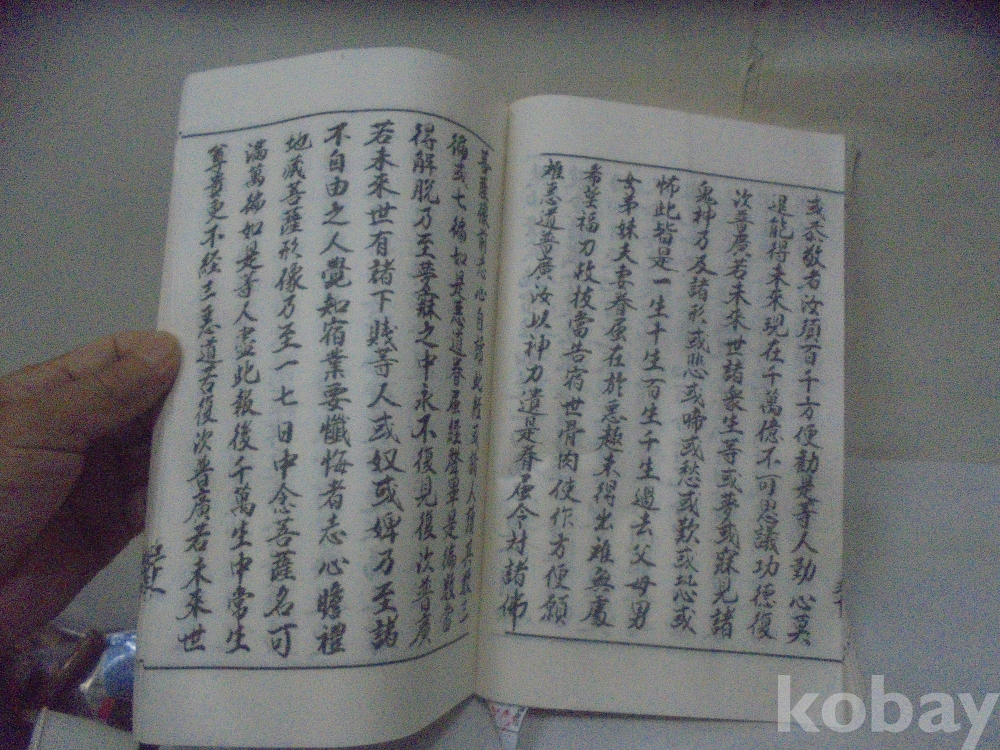 或恭敬者汝須百千方便勸是等人勤心莫
退能得未來現在千萬億不可思議功德復
次普廣若未來世諸衆生等或夢或寐見諸
鬼神乃及諸形或悲或啼或愁或歎或恐或
怖此皆是一生十生百生千生過去父母男
女弟妹夫妻眷屬在於惡趣未得出離無處
希望福力救拔當告宿世骨肉使作方便願
離惡道普廣汝以神力遣是眷屬令對諸佛
菩薩像前志心自讀此經或請人讀其數三
徧或七徧如是惡道眷屬經聲畢是徧數當
得解脫乃至夢寐之中永不復見復次普廣
若未來世有諸下賤等人或奴或婢乃至諸
不自由之人覺知宿業要懺悔者志心瞻禮
地藏菩薩形像乃至一七日中念菩薩名可
滿萬徧如是等人盡此報後千萬生中常生
尊貴更不經三惡道苦復次普廣若未來世
kobay